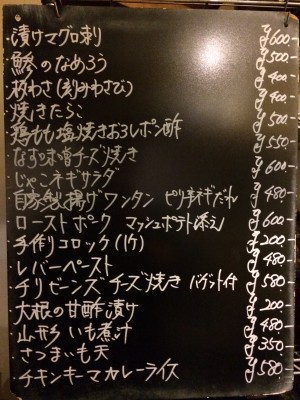 漬けマグロ刺 ¥600
鯵のなめろう ¥500
板わさ(刻みわさび) ¥400
焼きたらこ ¥400
鶏もも塩焼きおろしポン酢 ¥500
なす味噌チーズ焼き ¥550
じゃこネギサラダ ¥600
自家製揚げワンタン ピリ辛ネギだれ ¥480
ローストポーク マッシュポテト添え ¥600
手作りコロッケ(1ケ) ¥200
レバーペースト ¥480
チリビーンズチーズ焼き バゲット付 ¥580
大根の甘酢漬け ¥200
山形いも煮汁 ¥480
さつまいも天 ¥350
チキンキーマカレーライス ¥580